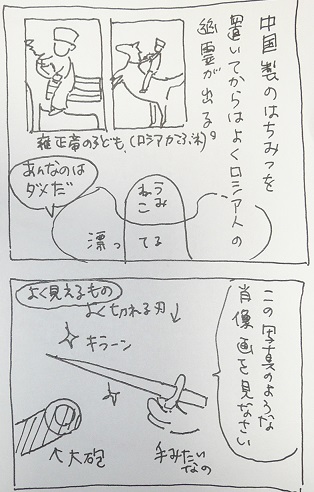 中国製のはちみつを
置いてからはよくロシア人の
幽霊が出る
雍正帝の子ども、(ロシアかぶれ)
あんなのは
ダメだ
うみ
ねこ
漂ってる
この写真のような
肖像画を見なさい
よく見えるもの
よく切れる刃↓
キラーン
手みたい
なの
↑大砲